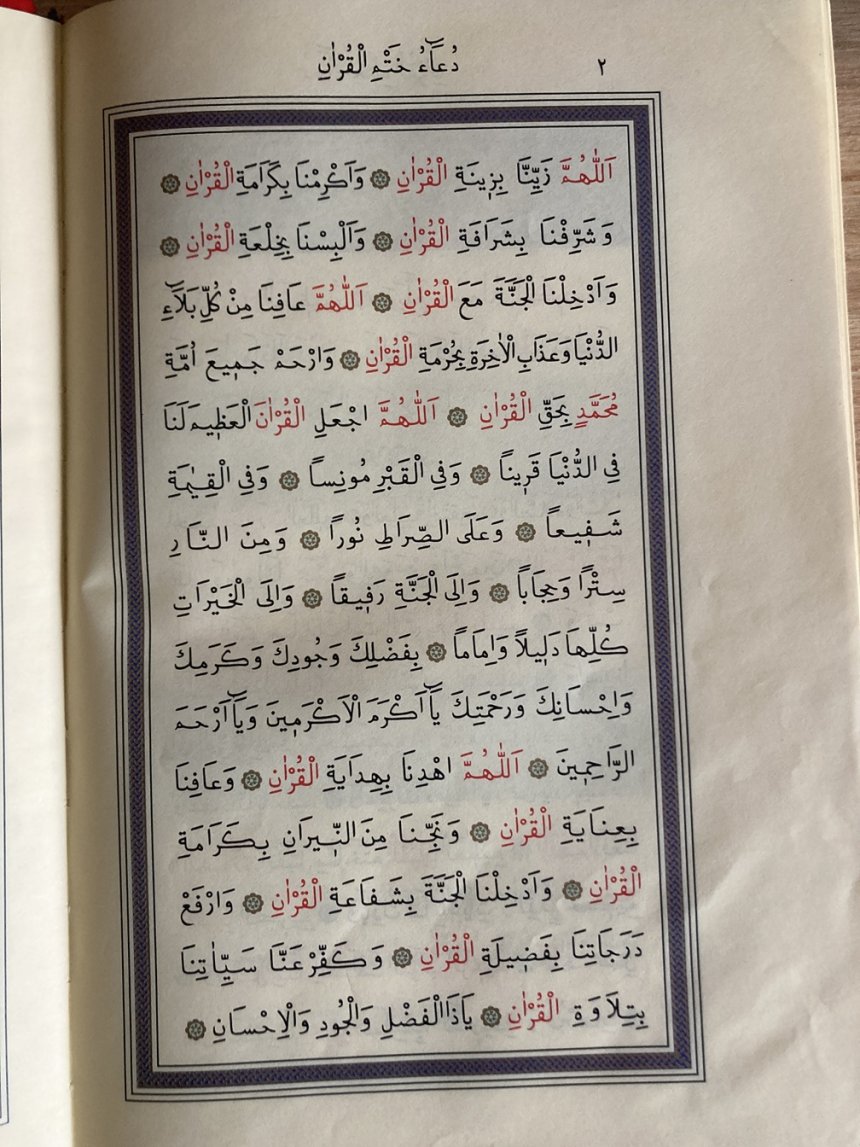 دُعَاۤءُ خَتْمِ الْقُرْاٰنِ ٢
اَللّٰهُمَّ زَيِّنَّا بِزِينَةِ الْقُرْاٰنِ ۞ وَاَكْرِمْنَا بِكَرَامَةِ الْقُرْاٰنِ ۞
وَشَرِّفْنَا بِشَرَافَةِ الْقُرْاٰنِ ۞ وَاَلْبِسْنَا بِخِلْعَةِ الْقُرْاٰنِ ۞
وَاَدْخِلْنَا الْجَنَّةَ مَعَ الْقُرْاٰنِ ۞ اَللّٰهُمَّ عَافِنَا مِنْ كُلِّ بَلَاۤءِ
الدُّنْيَا وَعَذَابِ الْاٰخِرَةِ بِحُرْمَةِ الْقُرْاٰنِ ۞ وَارْحَمْ جَمِيعَ اُمَّةِ
مُحَمَّدٍ بِحَقِّ الْقُرْاٰنِ ۞ اَللّٰهُمَّ اجْعَلِ الْقُرْاٰنَ الْعَظِيمَ لَنَا
فِى الدُّنْيَا قَرِيناً ۞ وَفِى الْقَبْرِ مُونِساً ۞ وَفِى الْقِيٰمَةِ
شَفِيعاً ۞ وَعَلَى الصِّرَاطِ نُوراً ۞ وَمِنَ النَّارِ
سِتْراً وَحِجَاباً ۞ وَاِلَى الْجَنَّةِ رَفِيقاً ۞ وَاِلَى الْخَيْرَاتِ
كُلِّهَا دَلِيلاً وَاِمَاماً ۞ بِفَضْلِكَ وَجُودِكَ وَكَرَمِكَ
وَاِحْسَانِكَ وَرَحْمَتِكَ يَاۤ اَكْرَمَ الْاَكْرَمِينَ وَيَاۤ اَرْحَمَ
الرَّاحِمِينَ ۞ اَللّٰهُمَّ اهْدِنَا بِهِدَايَةِ الْقُرْاٰنِ ۞ وَعَافِنَا
بِعِنَايَةِ الْقُرْاٰنِ ۞ وَنَجِّنَا مِنَ النِّيرَانِ بِكَرَامَةِ
الْقُرْاٰنِ ۞ وَاَدْخِلْنَا الْجَنَّةَ بِشَفَاعَةِ الْقُرْاٰنِ ۞ وَارْفَعْ
دَرَجَاتِنَا بِفَضِيلَةِ الْقُرْاٰنِ ۞ وَكَفِّرْ عَنَّا سَيِّاٰتِنَا
بِتِلَاوَةِ الْقُرْاٰنِ ۞ يَاذَا الْفَضْلِ وَالْجُودِ وَالْاِحْسَانِ ۞